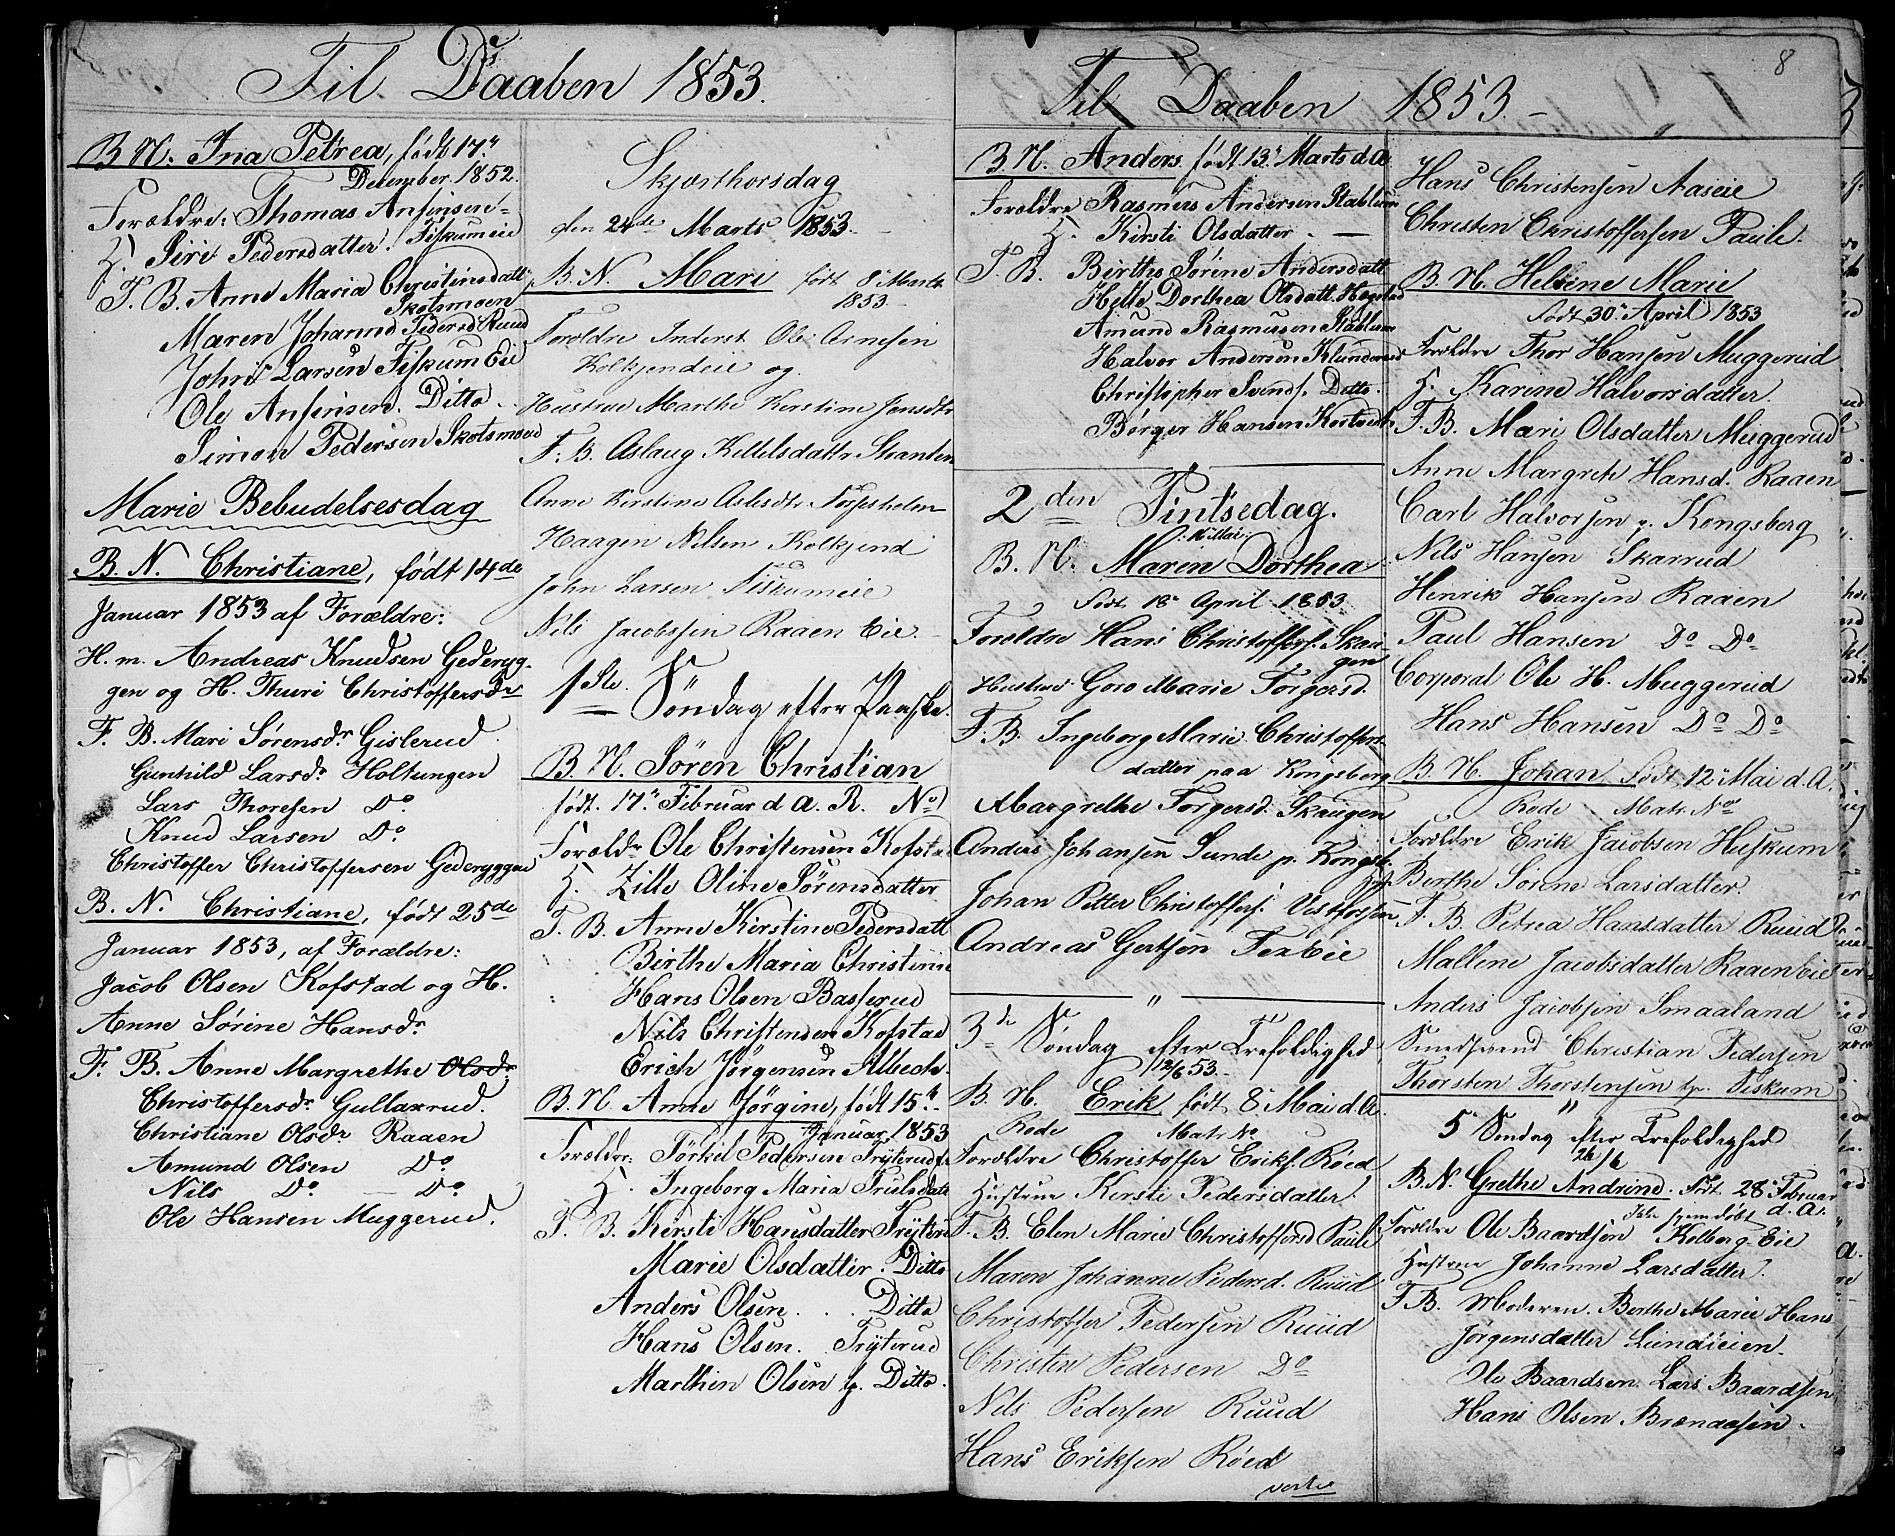 Til Daaben 1853.
B. N. Ina Petrea, født 17.
December 1852.
Forældre: Thomas Ansensen
Fiskumeie
H. Siri Pedersdatter.
F. B. Anne Maria Christinsdatt
Skotsmoen
Maren Johanne Pedersd. Ruud
John Larsen Fiskum Eie
Ole Ansensen. Ditto.
Simon Pedersen Skotsmoen
Marie Bebudelsesdag
B. N. Christiane, født 14de
Januar 1853 af Forældre:
H. m. Andreas Knudsen Gederyg-
gen og H. Thuri Christoffersdr
F. B. Mari Sørensdr Gislerud
Gunhild Larsdr Holtungen
Lars Thoresen Do
Knud Larsen Do
Christoffer Christoffersen Gederyggen
B. N. Christiane, født 25de
Januar 1853, af Forældre:
Jacob Olsen Kofstad og H.
Anne Sørine Hansdr
F. B. Anne Margrethe Olsdr
Christoffersdr Gullaxrud.
Christiane Olsdr Raaen
Amund Olsen Do
Nils Do Do
Ole Hansen Muggerud.
Skjærthorsdag
den 24de Marts 1853.
B. N. Mari født 8 Marts
1853
Forældre Inderst Ole Arnesen
Kolkjendeie og
Hustrue Marthe Kerstine Jensdtr
F. B. Aslaug Kittelsdattr Stranden
Anne Kirstine Aslesdtr Torjesholm
Haagen Nilsen Kolkjend
John Larsen Fiskumeie
Nils Jacobssen Raaen Eie.
1ste Søndag efter Paaske.
B. N. Søren Christian
født. 17. Februar d. A. R. No
Foreldr Ole Christensen Kofsta
H. Zille Oline Sørensdatter
F. B. Anne Kirstine Pedersdatt
Birthe Maria Christine
Hans Olsen Basserud
Nils Christensen Kofstad
Erich Jørgensen Albech.
B. N. Anne Jørgine, født 15.
Januar 1853
Forældre: Törkel Pedersen Fryterud
H. Ingeborg Maria Trulsdatt
F. B. Kersti Hansdatter Fryteru
Marie Olsdatter. Ditto
Anders Olsen. . . Ditto
Hans Olsen. Fryterud
Marthin Olsen Ditto.
8
Til Daaben 1853.
B. N. Anders født 13. Marts d. A
Foreldre Rasmus Andersen Stablum
H. Kirsti Olsdatter
F. B. Birthe Sørine Andersdatt
Helle Dorthea Olsdatt. Hogstad
Amund Rasmusen Stablum
Halvor Andersen Klunderud
Christopher Svends. Ditto.
Børger Hansen Kortvedt
2den Pintsedag.
B. N. Maren Dorthea
Født 18 April 1853
Foreldre Hans Christoffers. Skau-
gen
Hustrue Goro Marie Torgersd.
F. B. Ingeborg Marie Christoffers-
datter paa Kongsberg
Margrethe Torgersd. Skaugen
Anders Johansen Sunde p. Kongsb.
Johan Petter Christoffers. Vestfossen
Andreas Gertsen Texteie
3de Søndag efter Trefoldighed
12/6 53.
B. N. Erik født 8 Mai d. A.
Rode Matr No
Foreldre Christoffer Eriks. Röed
Hustrue Kersti Pedersdatter.
F. B. Elen Marie Christoffersd Paule
Maren Johanne Pedersd. Ruud
Christoffer Pedersen Ruud
Christen Pedersen Do
Nils Pedersen Ruud
Hans Eriksen Röed
vertes
Hans Christensen Aaseie
Christen Christoffersen Paule.
B. N. Helvine Marie
Født 30. April 1853
Foreldre Thor Hansen Muggerud
H. Karene Halvorsdatter.
F. B. Mari Olsdatter Muggerud
Anne Margrete Hansd. Raaen
Carl Halvorsen p. Kongsberg
Nils Hansen Skarrud
Henrik Hansen Raaen
Paul Hansen Do Do
Corporal Ole H. Muggerud
Hans Hansen Do Do
B. N. Johan Født 12 Mai d. A.
Rode Matr. No
Foreldre Erik Jacobsen Huskum
Berthe Sørine Larsdatter.
F. B. Petrea Hansdatter Ruud
Mallene Jacobsdatter Raaen Eie
Anders Jacobsen Smaaland
Smedsvend Christian Pedersen
Thorsten Thorstensen Fiskum
5 Søndag efter Trefoldighed
26/6
B. N. Grethe Andrine. Født 28 Februar
d. A.
hjemdøbt
Foreldre Ole Baardsen Kolberg Eie
Hustrue Johanne Larsdatter.
F. B. Moderen. Berthe Marie Hans
Jørgensdatter Lundeien.
Ole Baardsen. Lars Baardsen
Hans Olsen Brændaasen.